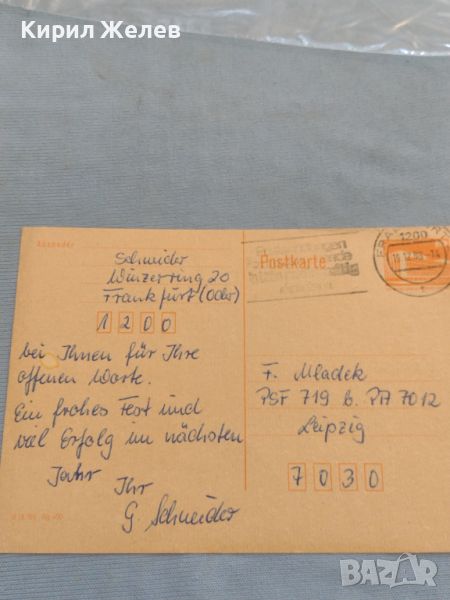 Кирил Желев
Absender
Schneider
Winzerring 20
Frankfurt (Oder)
1200
bei Ihnen für Ihre
offenen Worte.
Ein frohes Fest und
viel Erfolg im nächsten
Jahr
Ihr
G. Schneider
Postkarte
1200
F. Mladek
PSF 719 b. PA 7012
Leipzig
7030
bazar